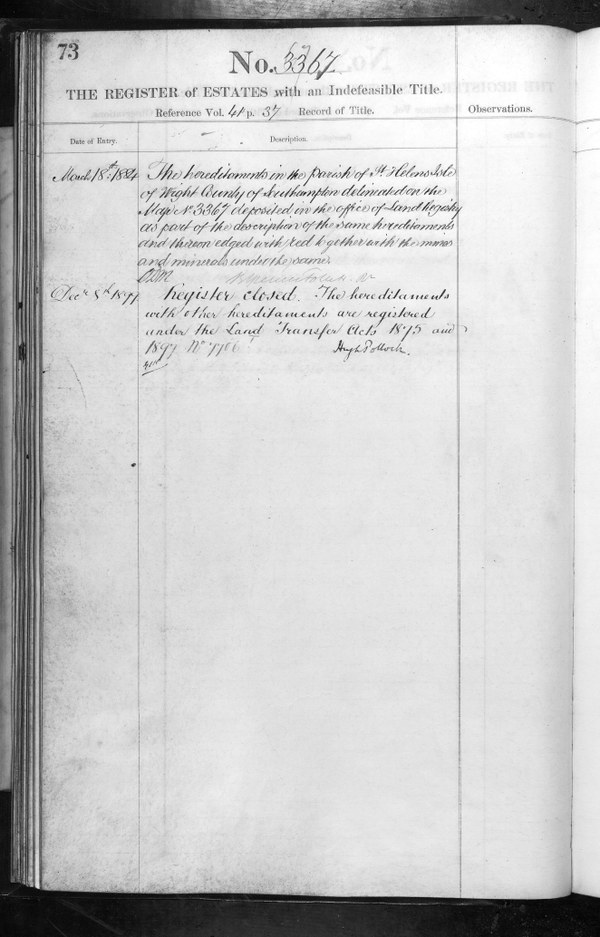 73
No. 3367
THE REGISTER of ESTATES with an Indefeasible Title.
Reference Vol. 41 p. 37 Record of Title.
Observations.
Date of Entry.
Description.
March 18th 1884
The hereditaments in the Parish of St Helens Isle
of Wight County of Southampton delineated on the
Map No 3367 deposited in the office of Land Registry
as part of the description of the same hereditaments
and thereon edged with red together with the mines
and minerals under the same.
Decr 8th 1897
Register closed. The hereditaments
with other hereditaments are registered
under the Land Transfer Acts 1875 and
1897 No
Hugh Pollock.